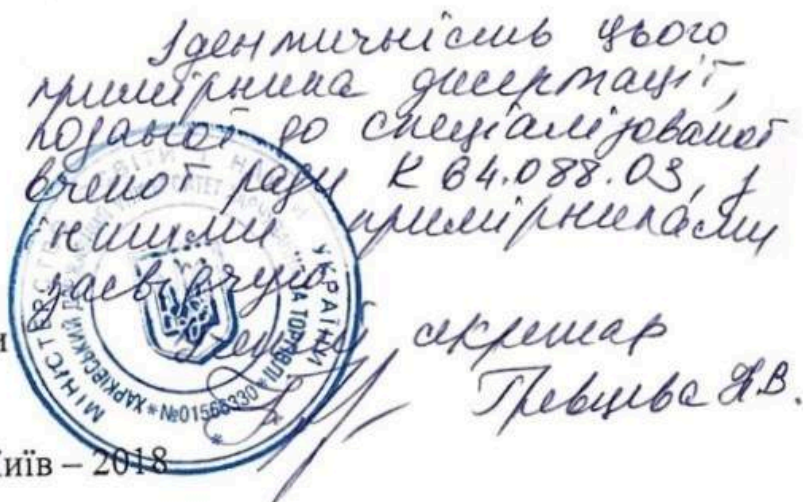 Ідентичність цього
примірника дисертації,
поданої до спеціалізованої
вченої ради К 64.088.03, з
іншими примірниками
засвідчую
Вчений секретар
Гревцева Н.В.
МІНІСТЕРСТВО ОСВІТИ І НАУКИ УКРАЇНИ
ХАРКІВСЬКИЙ ДЕРЖАВНИЙ УНІВЕРСИТЕТ ТА ТОРГІВЛІ
*№01566330*
и
иїв – 2018